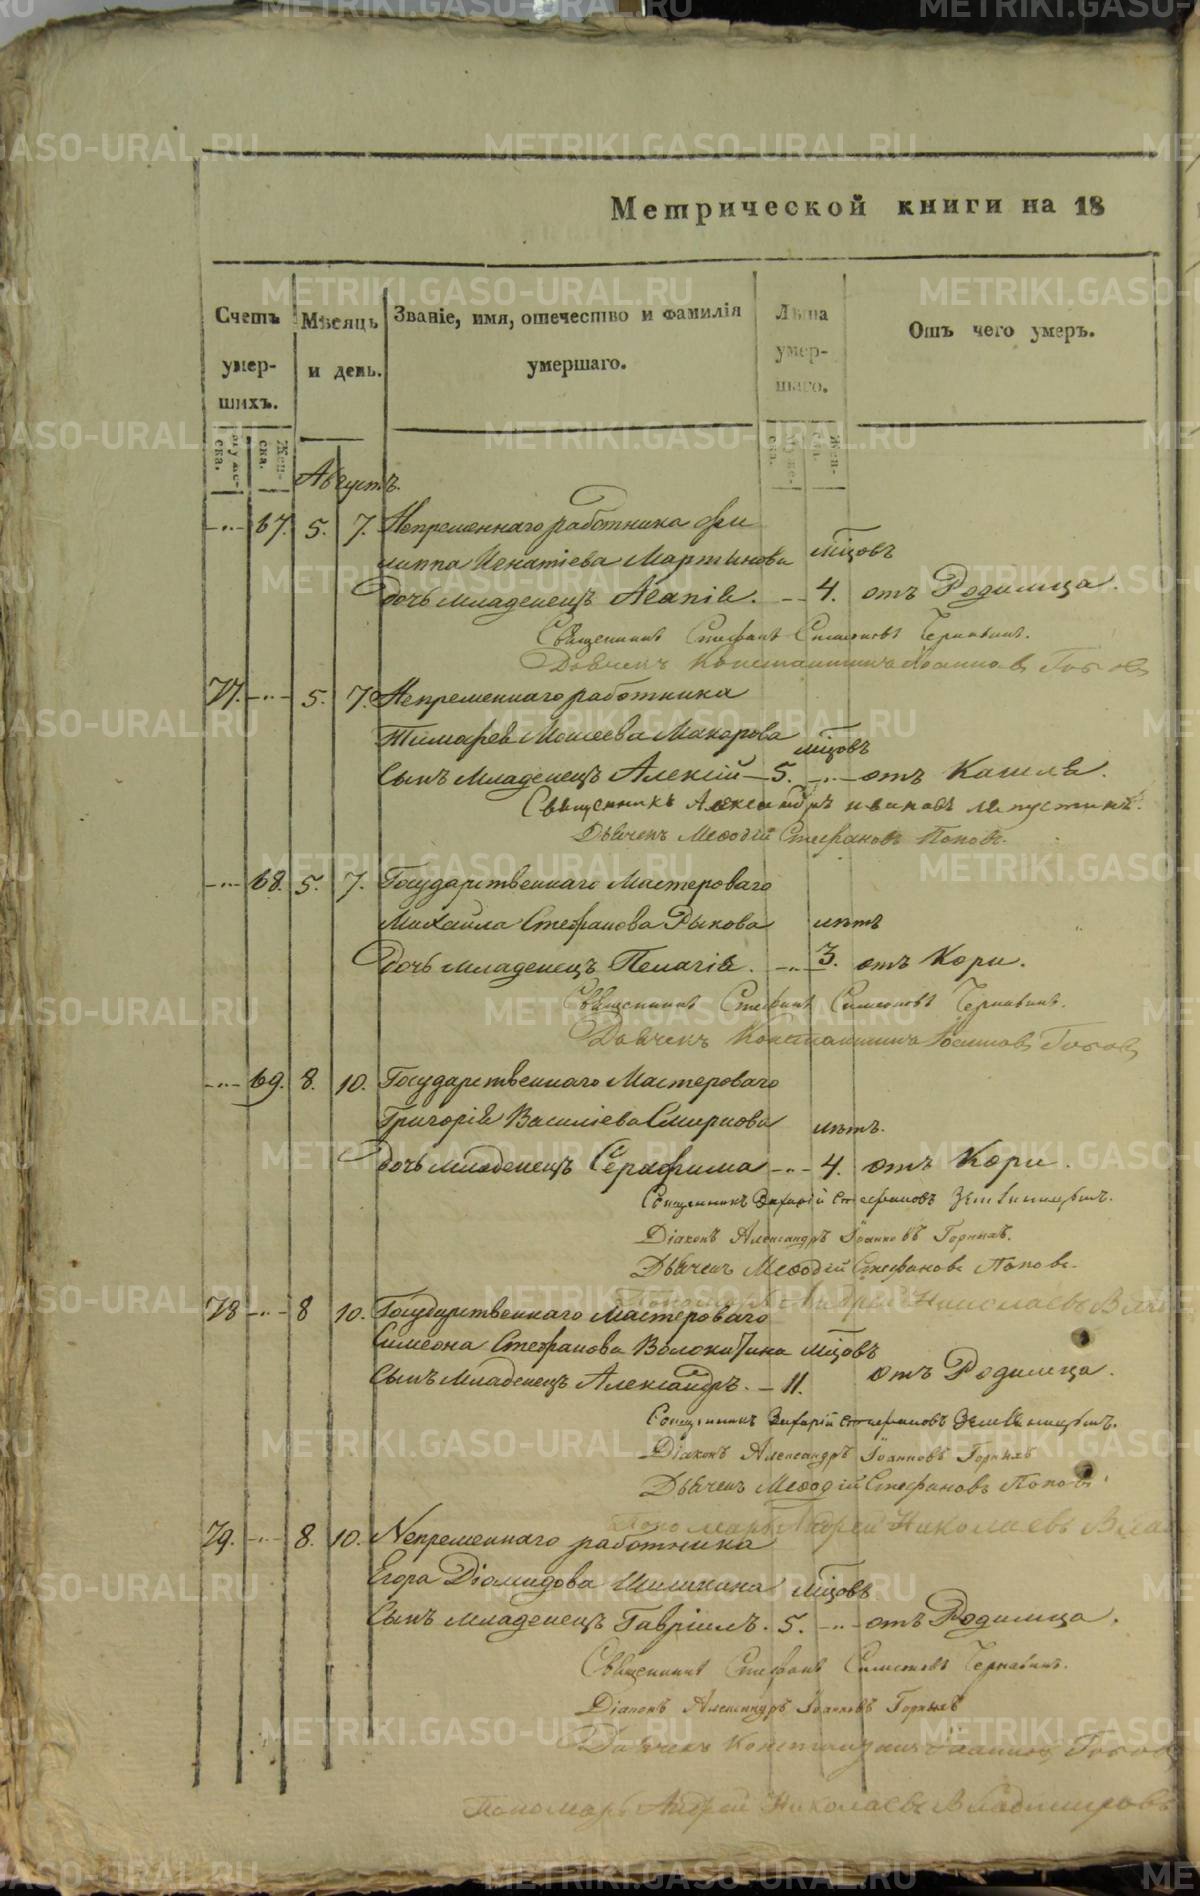 Метрической книги на 18
Счетъ умер-шихъ.
Мѣсяцъ и день.
Званіе, имя, отечество и фамилія умершаго.
Лѣта умер-шаго.
Отъ чего умеръ.
Муже-ска. Жен-ска. Муже-ска. Жен-ска.
Августъ.
67. 5. 7. Непременнаго работника Фи
липпа Игнатіева Мартынова мѣсцовъ
дочь младенецъ Агапія. 4. отъ Родимца.
Священникъ Стефанъ Симеоновъ Чернавинъ.
Дьячекъ Константинъ Іоанновъ
77. 5. 7. Непременнаго работника
Тимофея Моисеева Макарова мѣсцовъ
сынъ младенецъ Алексій 5. отъ Кашля.
Священникъ Александръ Ивановъ Лапустинъ.
Дьячекъ Меѳодій Стефановъ Поповъ.
68. 5. 7. Государственнаго Мастероваго
Михаила Стефанова Рыкова лѣтъ
дочь младенецъ Пелагія. 3. отъ Кори.
Священникъ Стефанъ Симеоновъ Чернавинъ.
Дьячекъ Константинъ Іоанновъ
69. 8. 10. Государственнаго Мастероваго
Григорія Василіева Смирнова лѣтъ.
дочь младенецъ Серафима 4. отъ Кори.
Священникъ Захарій Стефановъ
Діаконъ Александръ Іоанновъ Горныхъ.
Дьячекъ Меѳодій Стефановъ Поповъ.
Пономарь Андрей Николаевъ Влад
78 8 10. Государственнаго Мастероваго
Симеона Стефанова Волокитина мѣсцовъ
сынъ младенецъ Александръ. 11. отъ Родимца.
Священникъ Захарій Стефановъ
Діаконъ Александръ Іоанновъ Горныхъ
Дьячекъ Меѳодій Стефановъ Поповъ.
Пономарь Андрей Николаевъ Влад
79. 8. 10. Непременнаго работника
Егора Діомидова Шишкина мѣсцовъ
сынъ младенецъ Гавріилъ. 5. отъ Родимца.
Священникъ Стефанъ Симеоновъ Чернавинъ.
Діаконъ Александръ Іоанновъ Горныхъ
Дьячекъ Константинъ Іоанновъ
Пономарь Андрей Николаевъ Владимировъ
METRIKI.GASO-URAL.RU